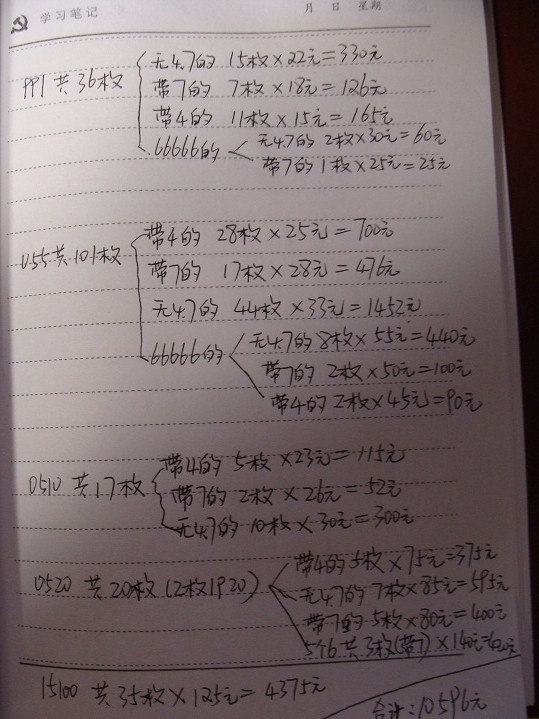 学习笔记 月 日 星期
无4.7的 15枚×22元=330元
PP1 共36枚 带7的 7枚×18元=126元
带4的 11枚×15元=165元
66666的 无4.7的 2枚×30元=60元
带7的 1枚×25元=25元
带4的 28枚×25元=700元
055共101枚 带7的 17枚×28元=476元
无4.7的 44枚×33元=1452元
66666的 无4.7的 8枚×55元=440元
带7的 2枚×50元=100元
带4的 2枚×45元=90元
带4的 5枚×23元=115元
0510 共17枚 带7的 2枚×26元=52元
无4.7的 10枚×30元=300元
带4的 5枚×75元=375元
0520 共20枚(2枚1P20) 无4.7的 7枚×85元=595元
带7的 5枚×80元=400元
5个6 共3枚(带7)×140元=420元
15100 共35枚×125元=4375元
合计:10596元